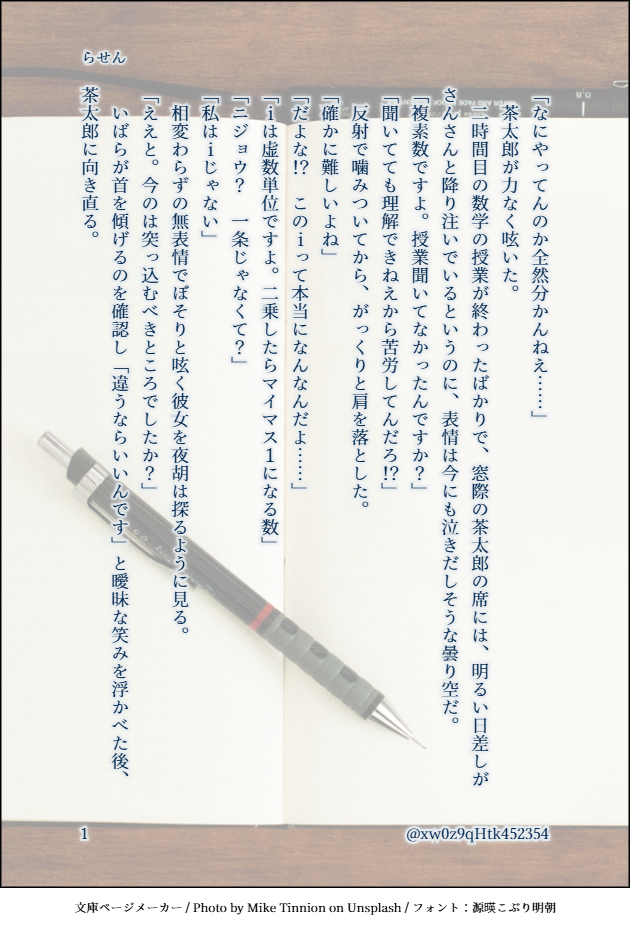 らせん
「なにやってんのか全然分かんねえ……」
　茶太郎が力なく呟いた。
　二時間目の数学の授業が終わったばかりで、窓際の茶太郎の席には、明るい日差しが
さんさんと降り注いでいるというのに、表情は今にも泣きだしそうな曇り空だ。
「複素数ですよ。授業聞いてなかったんですか？」
「聞いてても理解できねえから苦労してんだろ!?」
　反射で噛みついてから、がっくりと肩を落とした。
「確かに難しいよね」
「だよな!?　このｉって本当になんなんだよ……」
「ｉは虚数単位ですよ。二乗したらマイマス１になる数」
「ニジョウ？　一条じゃなくて？」
「私はｉじゃない」
　相変わらずの無表情でぼそりと呟く彼女を夜胡は探るように見る。
「ええと。今のは突っ込むべきところでしたか？」
　いばらが首を傾げるのを確認し「違うならいいんです」と曖昧な笑みを浮かべた後、
茶太郎に向き直る。
1
@xw0z9qHtk452354
文庫ページメーカー / Photo by Mike Tinnion on Unsplash / フォント：源暎こぶり明朝